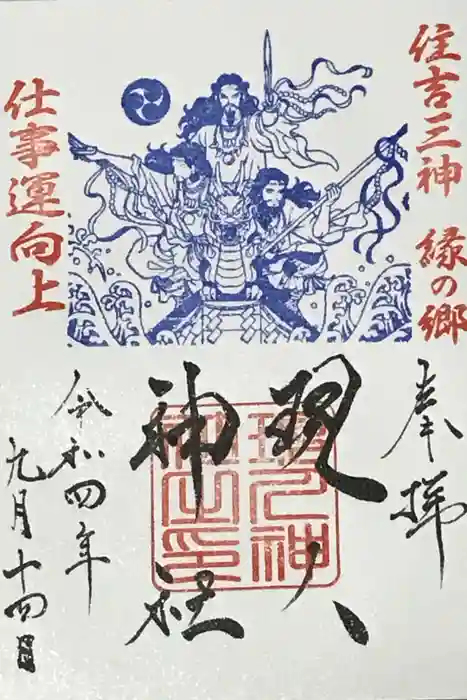 住吉三神 縁の郷
仕事運向上
奉拝
現人
神社
令和四年
九月十四日